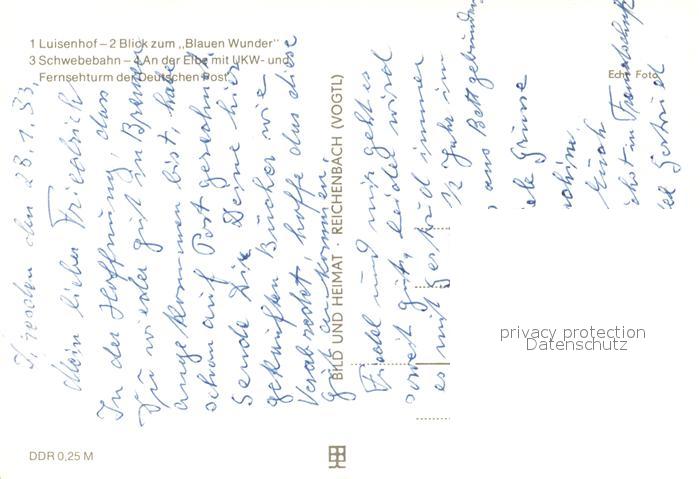 1 Luisenhof – 2 Blick zum „Blauen Wunder"
3 Schwebebahn – 4 An der Elbe mit UKW- und
Fernsehturm der Deutschen Post
Echt Foto
BILD UND HEIMAT · REICHENBACH (VOGTL)
DDR 0,25 M
Dresden den 23.1.83.
Mein lieber Friedrich
In der Hoffnung, dass
Du wieder gut in Bremen
angekommen bist, habe
schon auf Post gerechnet
Sende Dir Deine hier
gekauften Bücher wie
Verabredet, hoffe das diese
gut ankommen.
Friedel und mir geht es
soweit gut, leider wird
es mit immer
½ Jahr im
aus Bett gebunden
Grüsse
Euch
privacy protection
Datenschutz